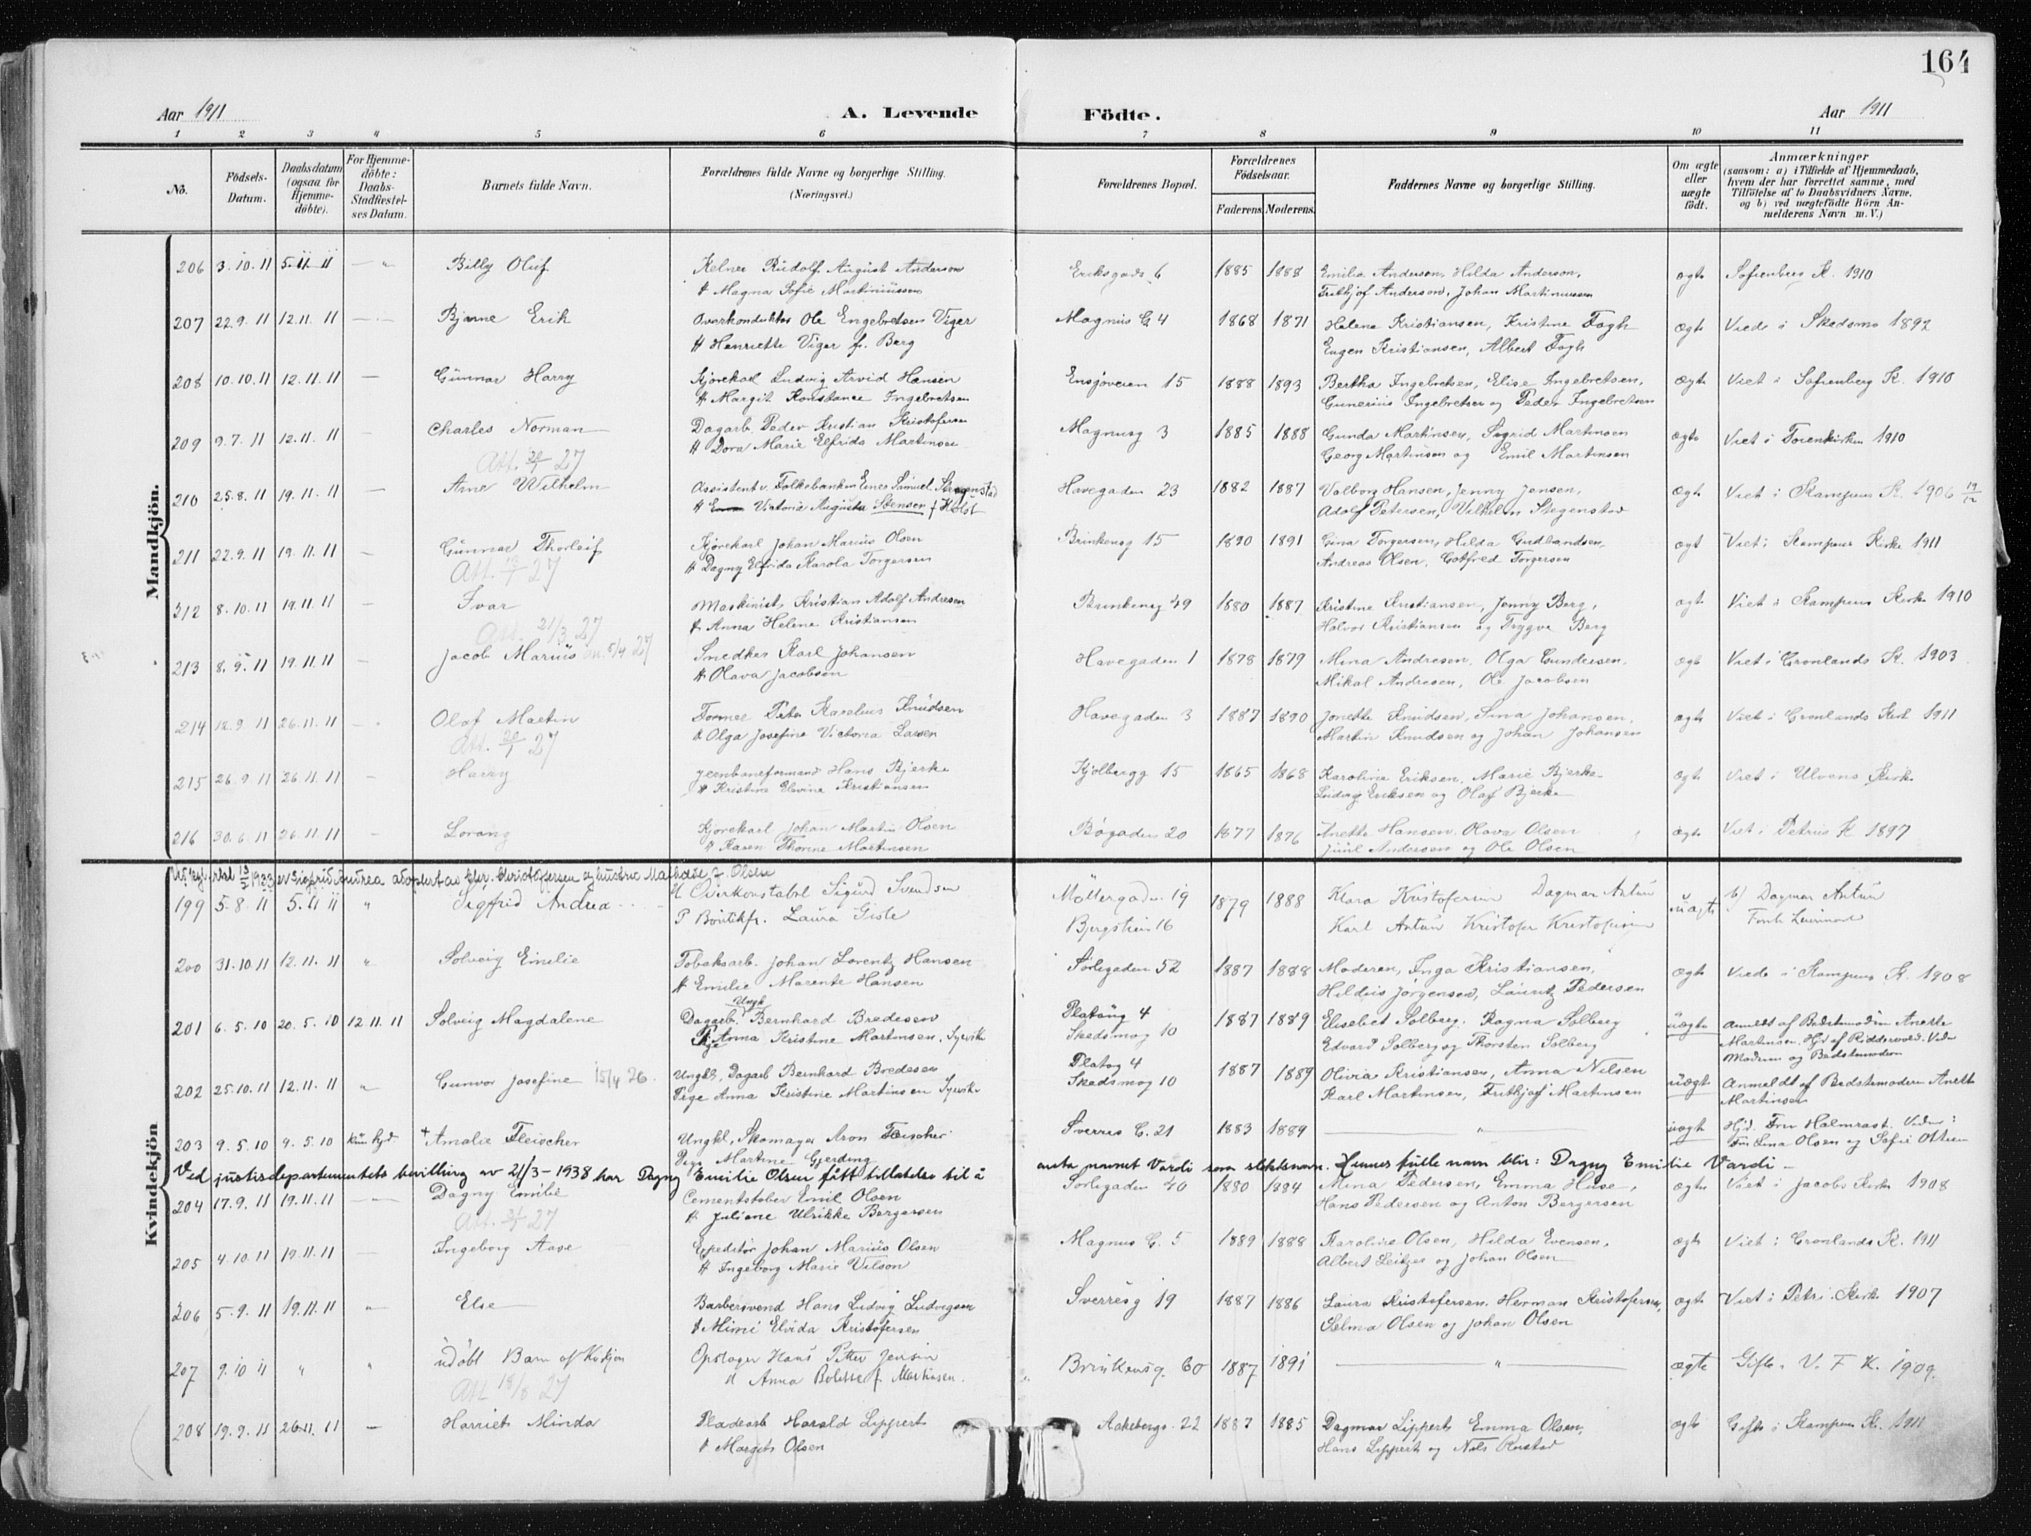 164
Aar 1911 A. Levende Födte. Aar 1911
1 2 3 4 5 6 7 8 9 10 11
No. Födsels-Datum. Daabsdatum (ogsaa for Hjemmedöbte). For Hjemmedöbte: Daabs-Stadfæstelses Datum. Barnets fulde Navn. Forældrenes fulde Navne og borgerlige Stilling. (Næringsvei.) Forældrenes Bopæl. Forældrenes Födselsaar. Faderens. Moderens. Faddernes Navne og borgerlige Stilling. Om ægte eller uægte födt. Anmærkninger (saasom: a) i Tilfælde af Hjemmedaab, hvem der har forrettet samme, med Tilföielse af to Daabsvidners Navne, og b) ved uægtefödte Börn Anmelderens Navn m. V.)
Mandkjön.
206 3.10.11 5.11.11 — Billy Oluf Kelner Rudolf August Anderson Eriksgade 6 1885 1888 Emilie Anderson, Hilda Anderson, ægte Sofienberg K. 1910
H Magna Sofie Martiniussen Fridtjof Anderson, Johan Martinussen
207 22.9.11 12.11.11 — Bjarne Erik Overkonduktør Ole Engebretsen Viger Magnus G 4 1868 1871 Helene Kristiansen, Kristine Fagh ægte Viede i Skedsmo 1892
H Henriette Viger f. Berg Eugen Kristiansen, Albert Fagh
208 10.10.11 12.11.11 — Gunnar Harry Kjørekarl Ludvig Arvid Hansen Ensjøveien 15 1888 1893 Bertha Ingebretsen, Elise Ingebretsen, ægte Viet i Sofienberg K. 1910
H Margit Konstance Ingebretsen Gunerius Ingebretsen og Peder Ingebretsen
209 9.7.11 12.11.11 — Charles Norman Dagarb. Peder Kristian Kristofersen Magnusg 3 1885 1888 Gunda Martinsen, Sigrid Martinsen ægte Viet i Tøienkirken 1910
H Dora Marie Elfrida Martinsen Georg Martinsen og Emil Martinsen
Att. 27
210 25.8.11 19.11.11 — Arne Wilhelm Assistent v. Folkebanken Einar Samuel Stegenstad Havegaden 23 1882 1887 Valborg Hansen, Jenny Jensen, ægte Viet i Kampens K. 1906 19/12
H Victoria Augusta Stensen f Holst Adolf Petersen, Vilhelm Stegenstad
211 22.9.11 19.11.11 — Gunnar Thorleif Kjørekarl Johan Marius Olsen Brinkensg 15 1890 1891 Gina Torgersen, Hilda Gudbandsen, ægt Viet i Kampens Kirke 1911
H Dagny Elfrida Karola Torgersen Andreas Olsen, Gotfred Torgersen
Att. 27
312 8.10.11 19.11.11 — Ivar Maskinist Kristian Adolf Andresen Brinkensg 49 1880 1887 Kristine Kristiansen, Jenny Berg, ægt Viet i Kampens Kirke 1910
H Anna Helene Kristiansen Halvor Kristiansen og Trygve Berg
Att. 21/3 27
213 8.9.11 19.11.11 — Jacob Marius 5/4 27 Snedker Karl Johansen Havegaden 1 1878 1879 Mina Andresen, Olga Gundersen, ægt Viet i Grønlands K. 1903
H Olava Jacobsen Mikal Andresen, Ole Jacobsen
214 12.9.11 26.11.11 — Olaf Martin Former Peter Karelius Knudsen Havegaden 3 1887 1890 Jonette Knudsen, Sina Johansen, ægt Viet i Grønlands Kirk 1911
H Olga Josefine Victoria Larsen Martin Knudsen og Johan Johansen
Att. 27
215 26.9.11 26.11.11 — Harry Jernbaneformand Hans Bjerke Kjølbergg 15 1865 1868 Karoline Eriksen, Marie Bjerke ægt Viet i Ulvens Kirke
H Kristine Elevine Kristiansen Ludvig Eriksen og Olaf Bjerke
216 30.6.11 26.11.11 — Lorang Kjørekarl Johan Martin Olsen Bøgaden 20 1877 1876 Anette Hansen, Olava Olsen ægt Viet i Petrus K 1897
H Karen Thorine Martinsen Juul Andersen og Ole Olsen
Kvindekjön
13/2 1923 er Sigfrid Andrea adoptert av Chr. Christoffersen og hustru Mathilde f. Olsen
199 5.8.11 5.11.11 " Sigfrid Andrea U Overkonstabel Sigurd Svendsen Møllergaden 19 1879 1888 Klara Kristofersen Dagmar Antun uægte b) Dagmar Antun
P Butikfr. Laura Gisle Bjergstien 16 Karl Antun Kristofer Kristofersen
200 31.10.11 12.11.11 " Solveig Emilie Tobaksarb. Johan Lorentz Hansen Sørligaden 52 1887 1888 Moderen, Inga Kristiansen, ægte Viede i Kampens K. 1908
H Emilie Marente Hansen Hildus Jørgensen, Lauritz Pedersen
201 6.5.10 20.5.10 12.11.11 Solveig Magdalene Ungk. Dagarb. Bernhard Bredesen Platoug 4 1887 1889 Elisebet Solberg, Ragna Solberg uægte Anmeldt af Bedstemoderen Anette
Pige Anna Kristine Martinsen, Syerske Skedsmog 10 Edvard Solberg og Thorsten Solberg Martinsen, Hjd af Riddervold. Vidner
Moderen og Bedstemoderen
202 25.10.11 12.11.11 " Gunvor Josefine 15/4 26. Ungk, Dagarb Bernhard Bredesen Platog 4 1887 1889 Olivia Kristiansen, Anna Nilsen uægte Anmeldt af Bedstemoderen Anette
Pige Anna Kristine Martinsen Syerske Skedsmog 10 Karl Martinsen, Fridtjof Martinsen Martinsen
203 9.5.10 9.5.10 kun hjd + Amalie Fleischer Ungkl, Skomager Aron Fleischer Sverres G. 21 1883 1889 — " — uægt Hjd. Fru Halmrast. Vidner:
Pige Martine Gjerding Fru Lina Olsen og Sofie Ottesen
Ved justisdepartementets bevilling av 21/3-1938 har Dagny Emilie Olsen fått tillatelse til å anta navnet Vardi som slektsnavn. Hennes fulle navn blir: Dagny Emilie Vardi —
204 17.9.11 19.11.11 — Dagny Emilie Cementstøber Emil Olsen Sørligaden 40 1880 1884 Mina Pedersen, Emma Huse, ægte Viet i Jacobs Kirke 1908
H Juliane Ulrikke Bergersen Hans Pedersen og Anton Bergersen
Att. 27
205 4.10.11 19.11.11 — Ingeborg Aase Expeditør Johan Marius Olsen Magnus G. 5 1889 1888 Karoline Olsen, Hilda Evensen, ægte Viet i Grønlands K. 1911
H Ingeborg Marie Vilson Albert Leitzes og Johan Olsen
206 5.9.11 19.11.11 " Else Barbersvend Hans Ludvig Ludvigsen Sverresg 19 1887 1886 Laura Kristofersen, Herman Kristofersen, ægte Viet i Petri Kirke 1907
H Mimi Elvida Kristofersen Selma Olsen og Johan Olsen
207 9.10.11 " " udøbt Barn af Kvkjøn Opslager Hans Petter Jensen Brinkensg. 60 1887 1891 — " — ægte Gifte. V. F. K. 1909.
H Anna Bolette f. Martinsen.
Att 18/8 27
208 19.9.11 26.11.11 — Harriet Minda Pladearb Harald Lippert Aakebergv. 22 1887 1885 Dagmar Lippert, Emma Olsen, ægte Gifte i Kampens K. 1911
H Margit Olsen Hans Lippert og Nils Rustad